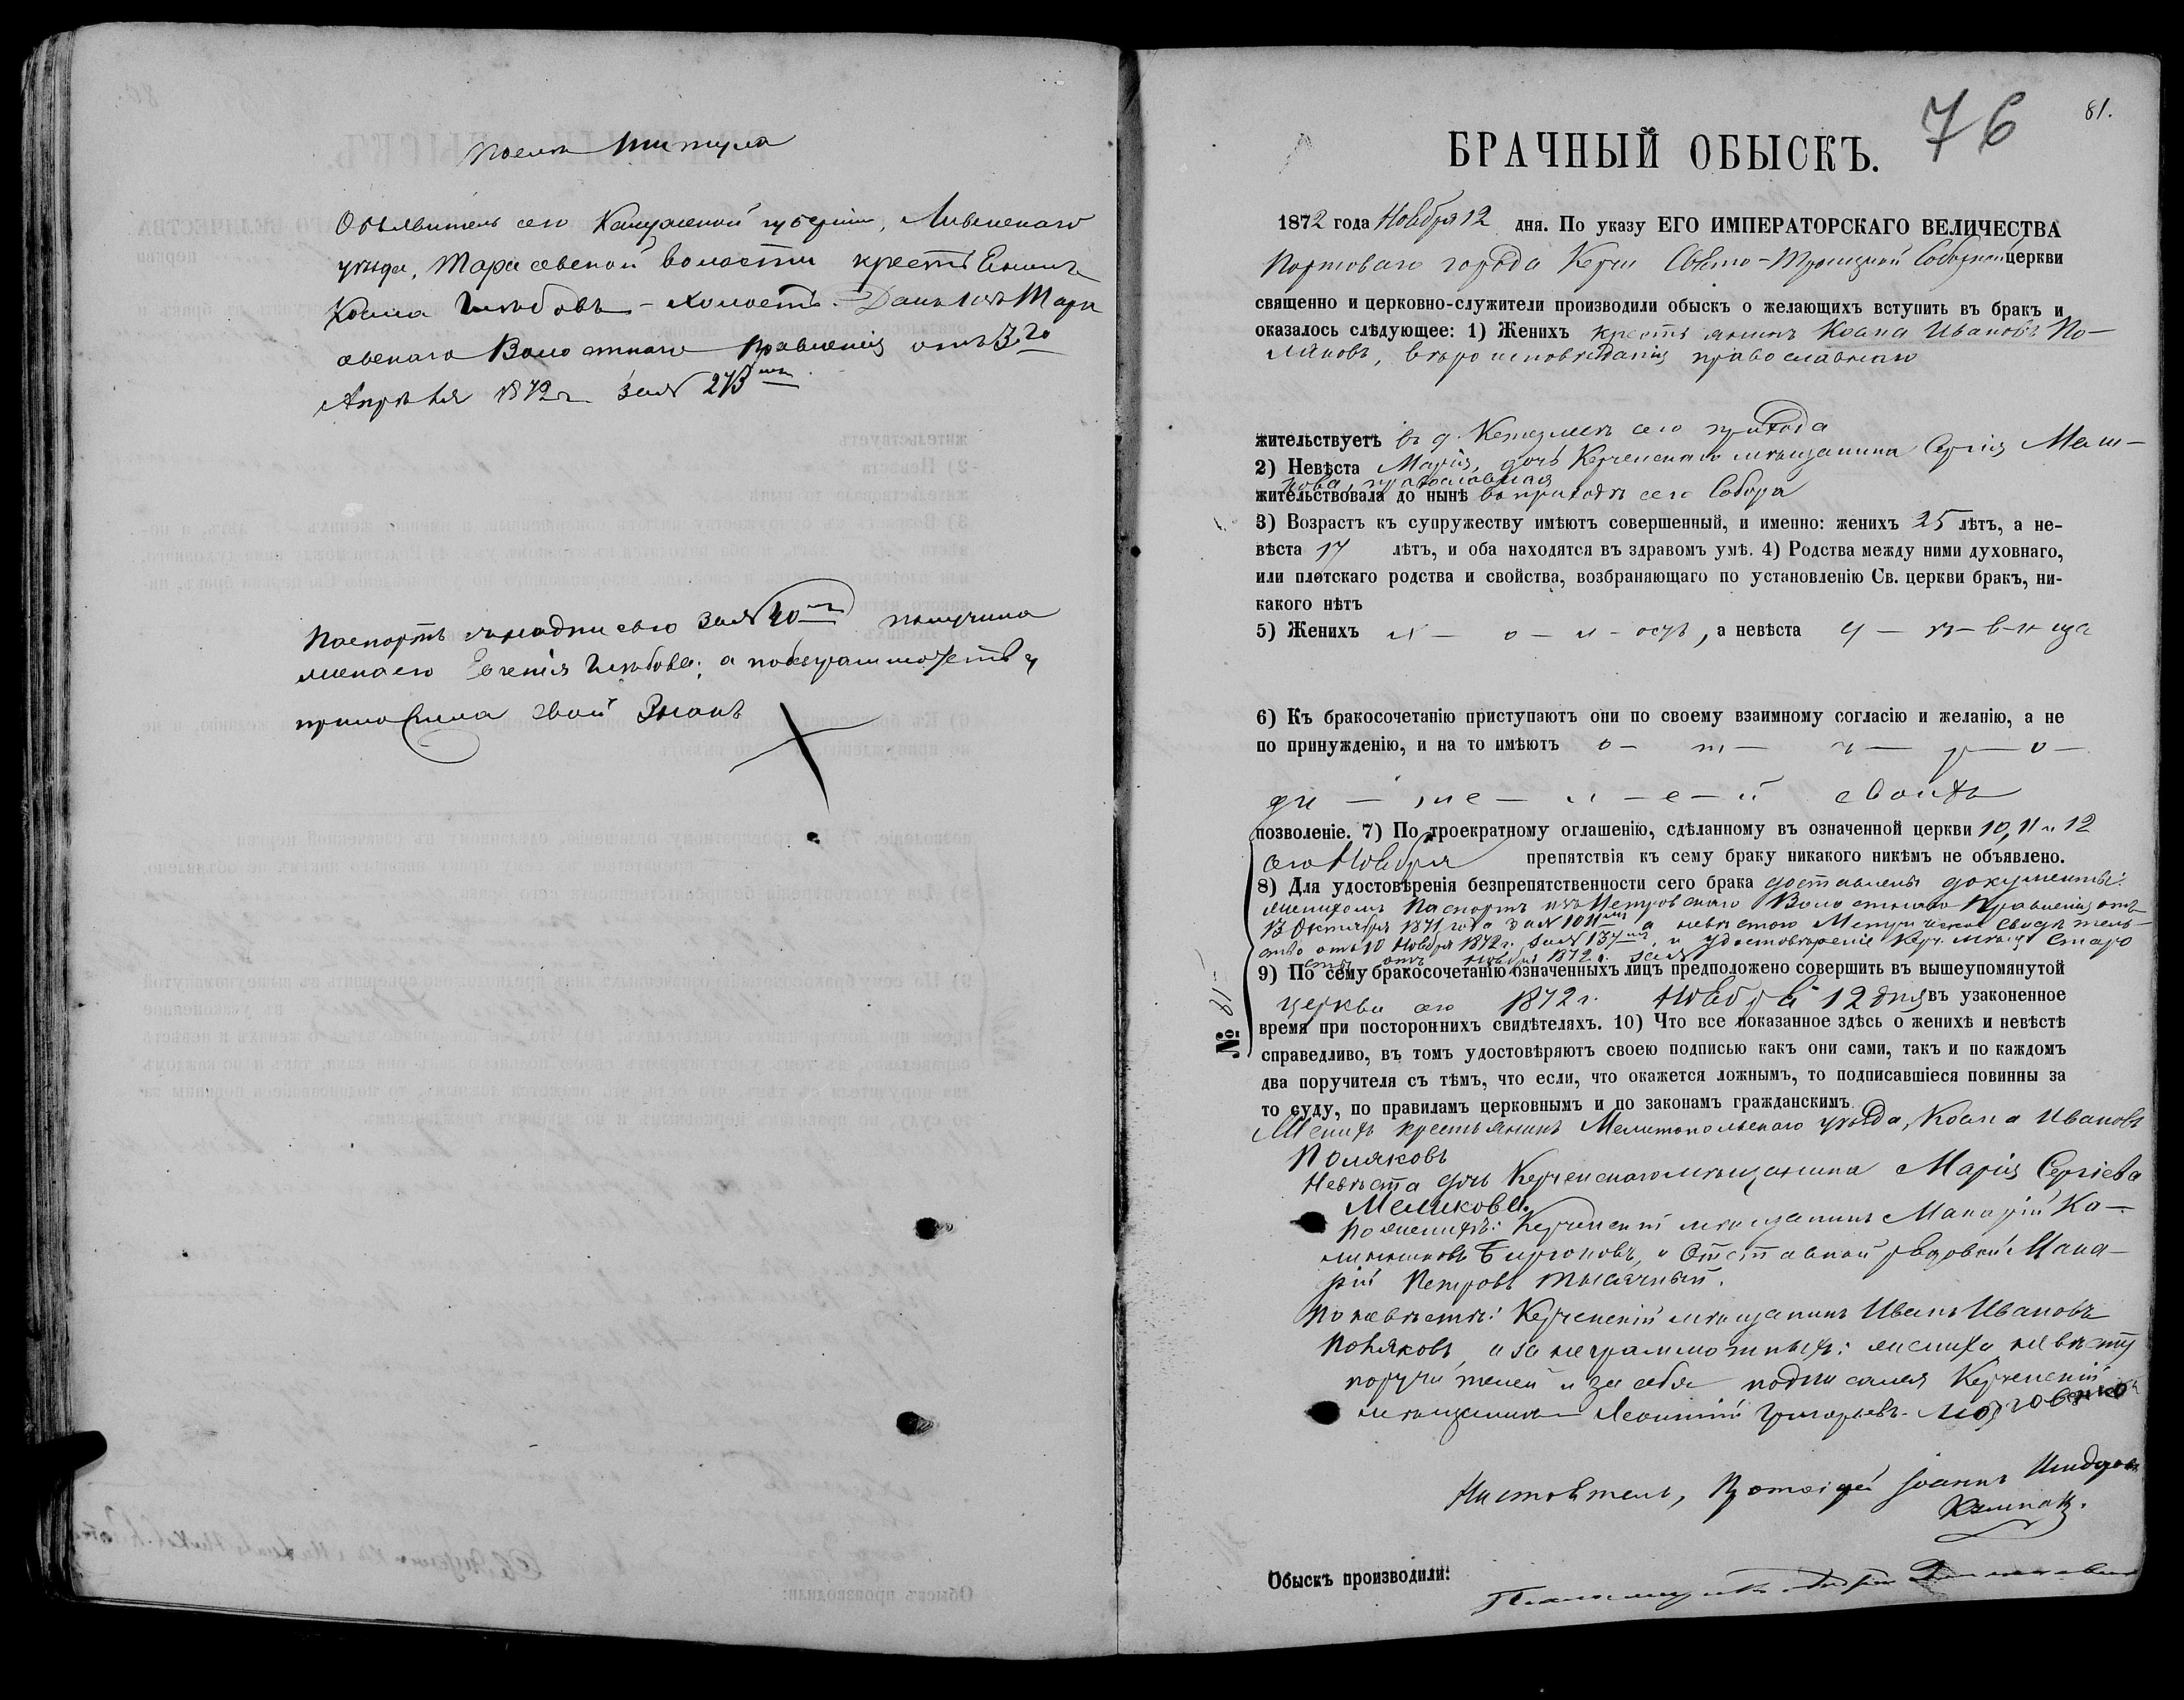 после титула
Объявитель сего Калужской губерніи,
уѣзда, Тарасевской волости крестьянинъ
Косма Глѣбовъ – холостъ. Данъ изъ Тара
севскаго Волостнаго Правленія отъ 3го
Апрѣля 1872 г. за № 273
Паспортъ съ надписью за № 20 получила
жена его Глѣбова; а по безграмотству
приложила свой знакъ
81.
76
БРАЧНЫЙ ОБЫСКЪ.
1872 года Ноября 12 дня. По указу ЕГО ИМПЕРАТОРСКАГО ВЕЛИЧЕСТВА
Портоваго города Керчи Свято-Троицкой Соборной церкви
священно и церковно-служители производили обыскъ о желающихъ вступить въ бракъ и
оказалось слѣдующее: 1) Женихъ крестьянинъ Косма Ивановъ По-
ляковъ, вѣроисповѣданія православнаго
жительствуетъ въ д. сего прихода
2) Невѣста Марія, дочь Керченскаго мѣщанина Сергія
православная
жительствовала до нынѣ въ приходѣ сего Собора
3) Возрастъ къ супружеству имѣютъ совершенный, и именно: женихъ 25 лѣтъ, а не-
вѣста 17 лѣтъ, и оба находятся въ здравомъ умѣ. 4) Родства между ними духовнаго,
или плотскаго родства и свойства, возбраняющаго по установленію Св. церкви бракъ, ни-
какого нѣтъ
5) Женихъ х – о – л – остъ, а невѣста д – ѣ – в – и ца
6) Къ бракосочетанію приступаютъ они по своему взаимному согласію и желанію, а не
по принужденію, и на то имѣютъ о –
ди – те – л – е – й своихъ
позволеніе. 7) По троекратному оглашенію, сдѣланному въ означенной церкви 10, 11 и 12
сего Ноября препятствія къ сему браку никакого никѣмъ не объявлено.
8) Для удостовѣренія безпрепятственности сего брака доставлены документы:
женихомъ Паспортъ изъ Петровскаго Волостнаго Правленія отъ
13 Октября 1871 года за № 1011 а невѣстою Метрическое свидѣтель-
ство отъ 10 Ноября 1872 г. за № 137, и удостовѣреніе Керч. мѣщ. Старо
сты отъ Ноября 1872 г. за №
9) По сему бракосочетаніе означенныхъ лицъ предположено совершить въ вышеупомянутой
церкви сего 1872 г. Ноября 12 дня въ узаконенное
№
время при постороннихъ свидѣтеляхъ. 10) Что все показанное здѣсь о женихѣ и невѣстѣ
справедливо, въ томъ удостовѣряютъ своею подписью какъ они сами, такъ и по каждомъ
два поручителя съ тѣмъ, что если, что окажется ложнымъ, то подписавшіеся повинны за
то суду, по правиламъ церковнымъ и по законамъ гражданскимъ
Женихъ крестьянинъ Мелитопольскаго уѣзда, Косма Ивановъ
Поляковъ
Невѣста дочь Керченскаго мѣщанина Марія Сергіева
Меликова.
По женихѣ: Керченскій мѣщанинъ Макарій
и Отставной рядовой Мака-
рій Петровъ Тысячный.
По невѣстѣ: Керченскій мѣщанинъ Иванъ Ивановъ
Поляковъ, а за неграмотныхъ: жениха невѣсту
поручителей и за себя подписался Керченскій
мѣщанинъ Леонтій Григорьевъ
Настоятель, Протоіерей Іоаннъ
Обыскъ производили: